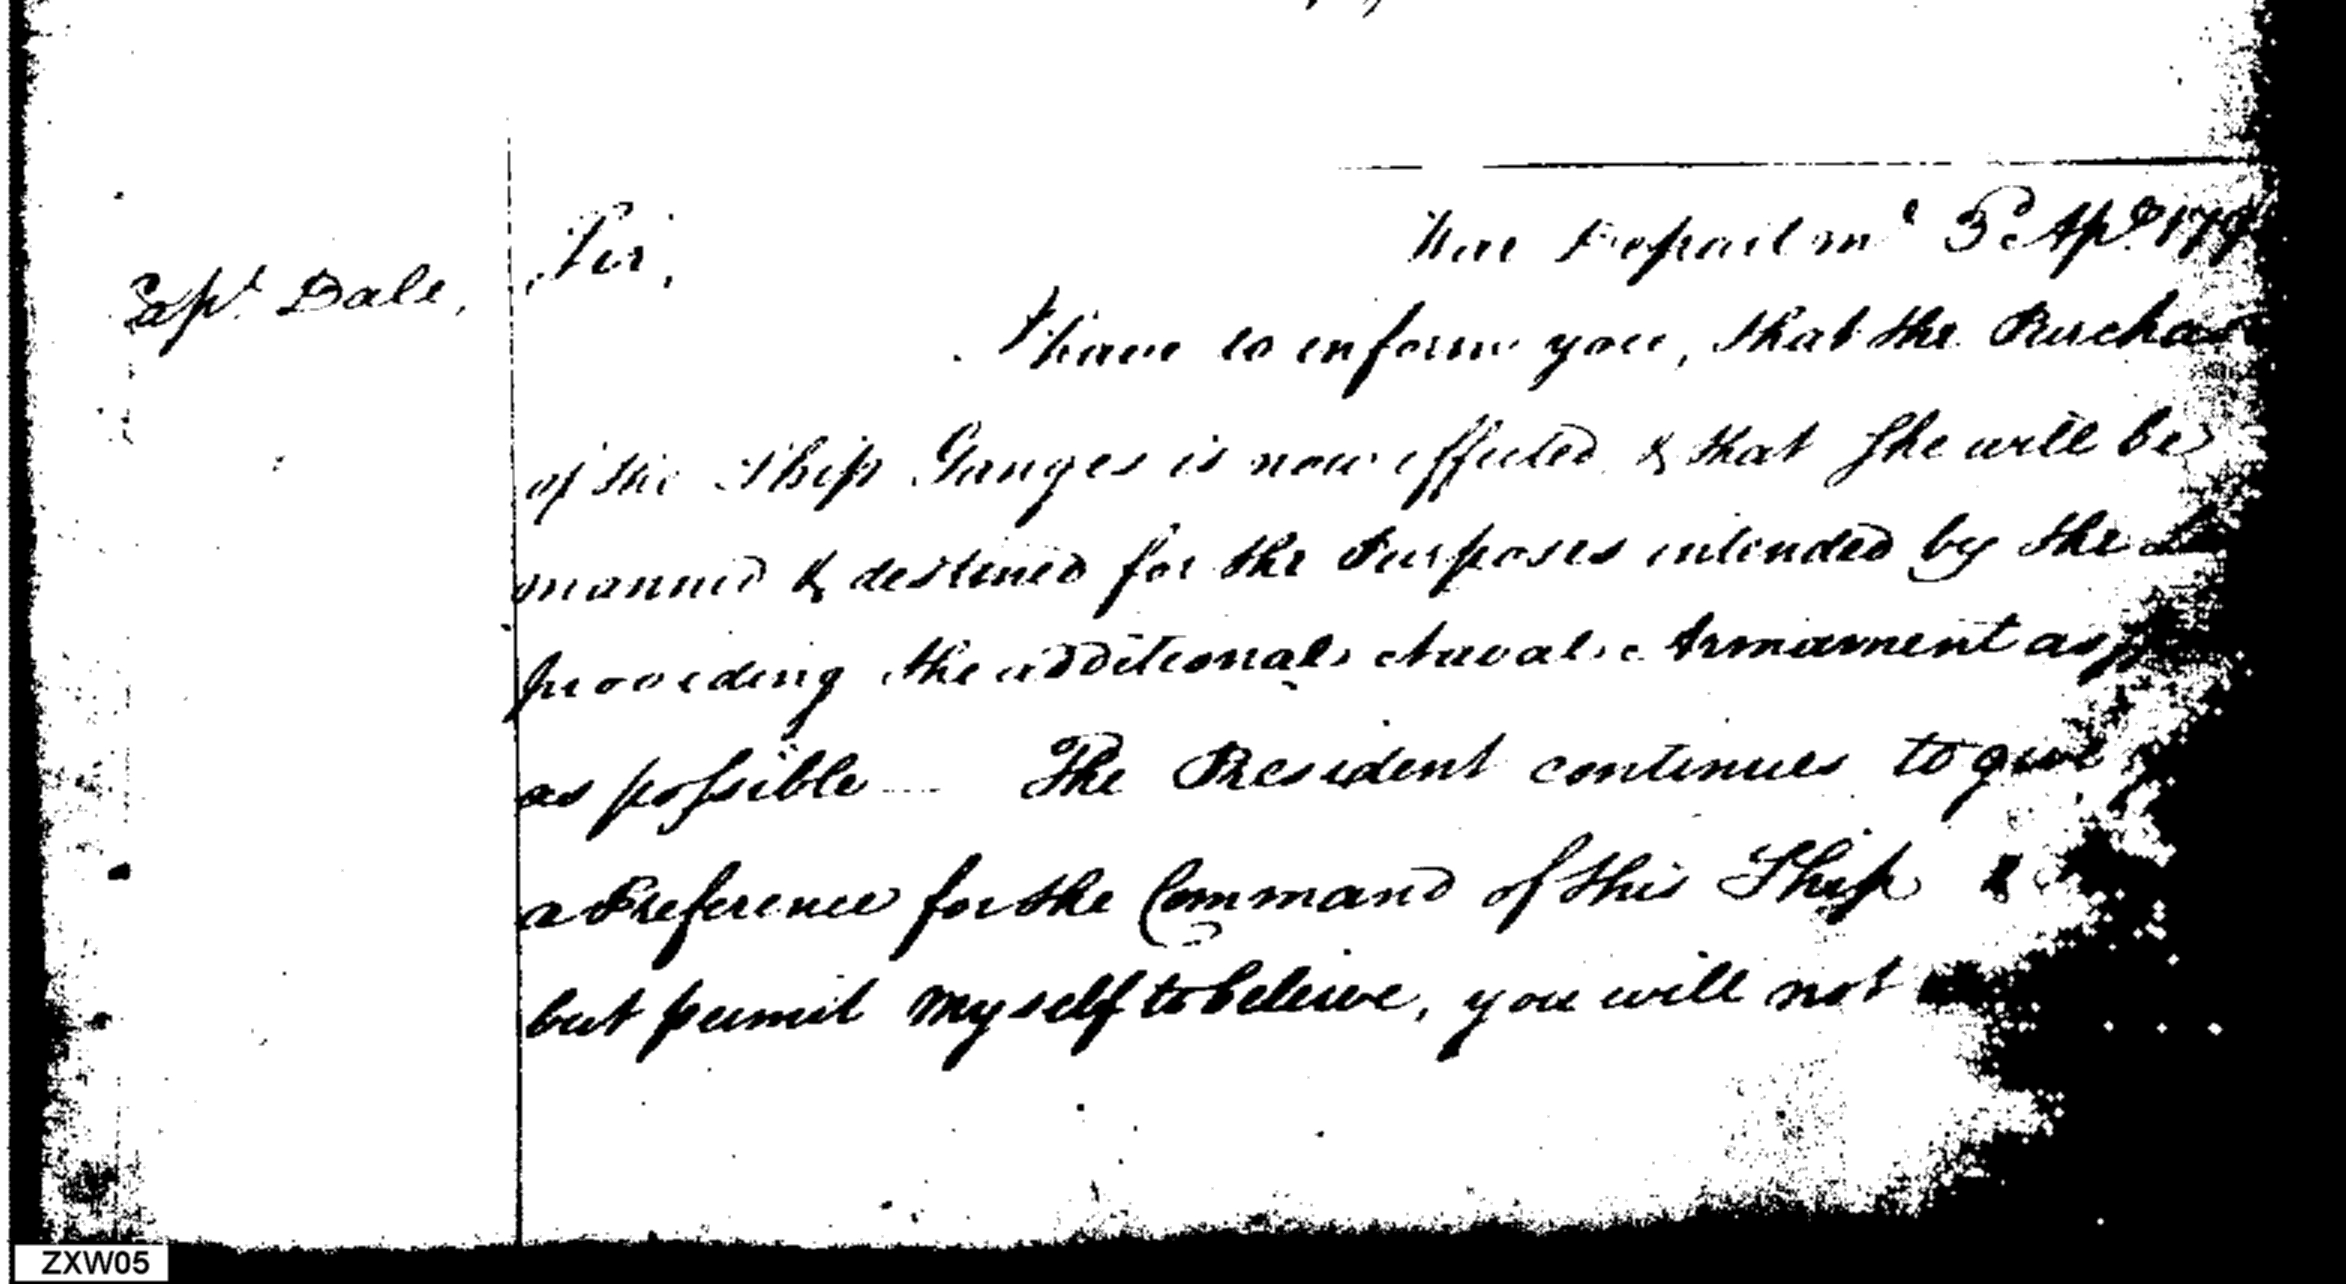 War Departmt 3d Apl. 179
Capt. Dale,
Sir,
I have to inform you, that the Purchas
of the Ship Ganges is now effected & that She will be
manned & destined for the Purposes intended by the
providing the additional Naval Armament as
as possible — The President continues to give
a Preference for the Command of this Ship &
but permit myself to believe, you will not
ZXW05